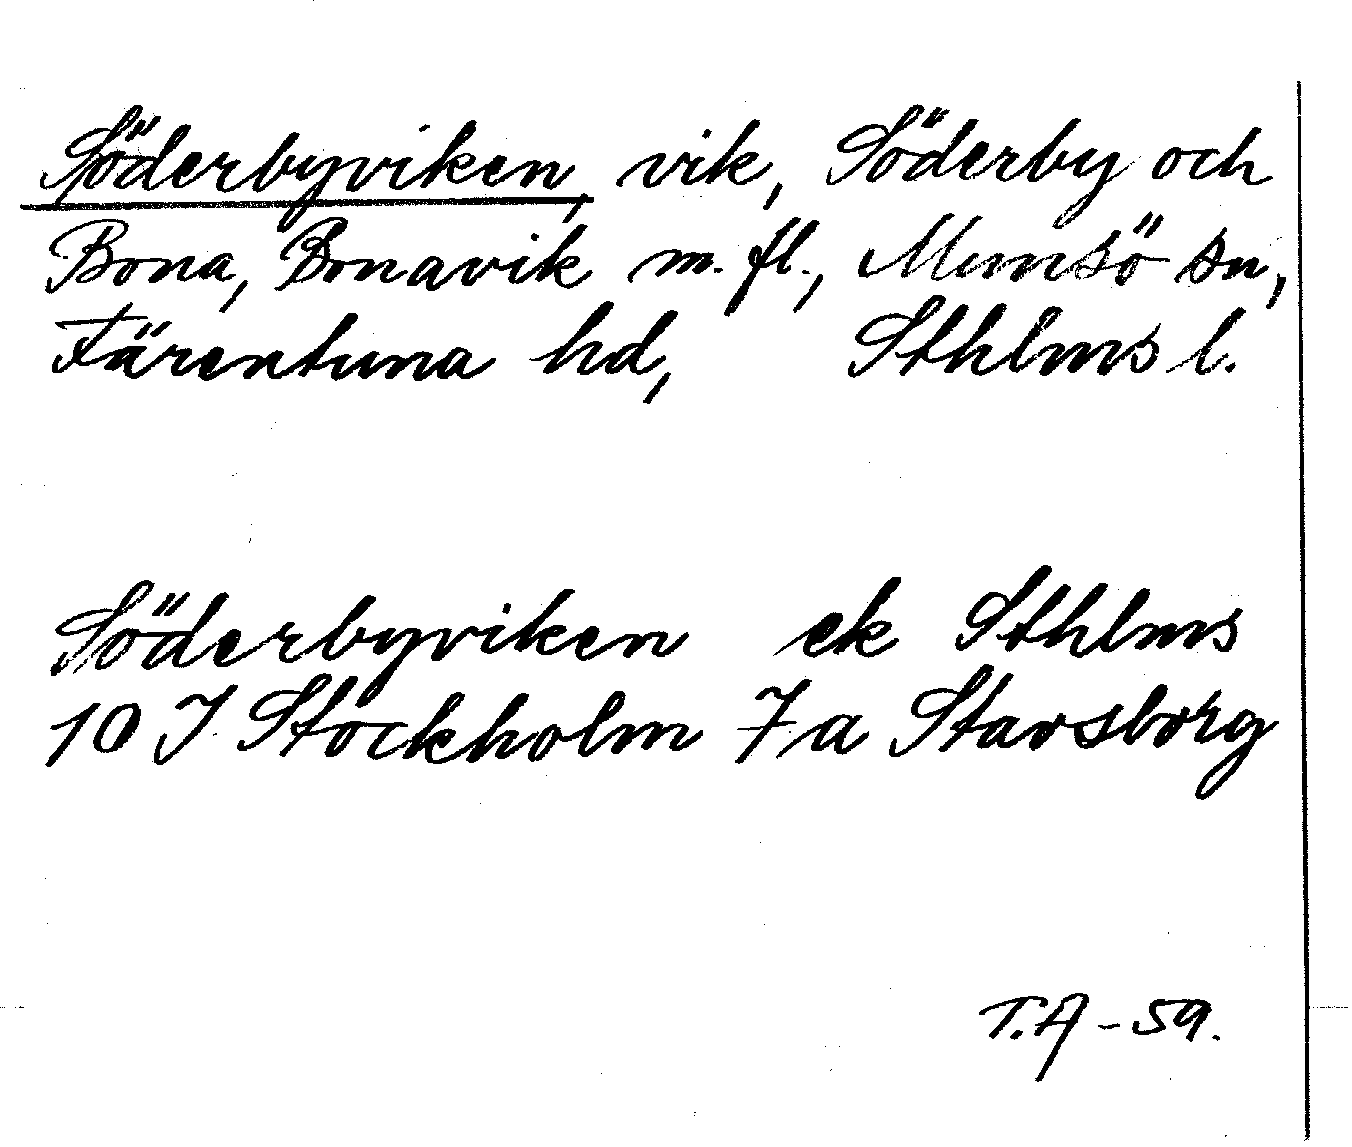 Söderbyviken, vik, Söderby och
Bona, Bonavik m.fl., Munsö sn,
Färentuna hd, Sthlms l.
Söderbyviken ek Sthlms
10 I Stockholm 7a Stavsborg
T.A - 59.